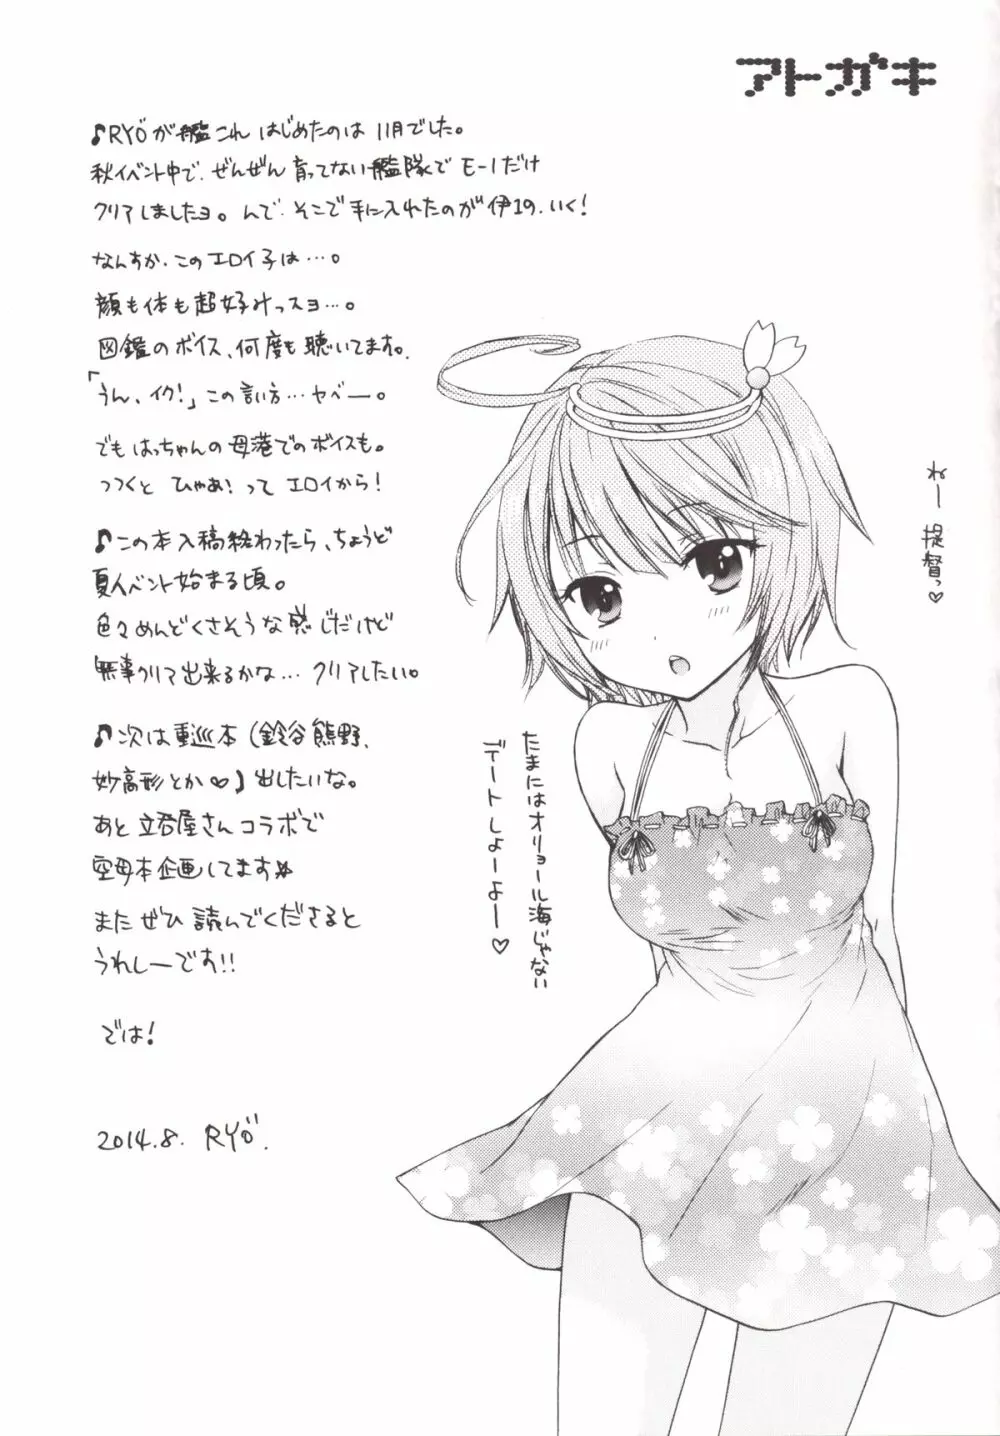 アトガキ
♪RYÖが艦これはじめたのは11月でした。
秋イベント中で、ぜんぜん育ってない艦隊でE-1だけ
クリアしましたヨ。んで、そこで手に入れたのが伊19、いく！
なんすか、このエロイ子は…。
顔も体も超好みっスヨ…。
図鑑のボイス、何度も聴いてます。
「うん、イク！」この言い方…ヤベー。
でもはっちゃんの母港でのボイスも。
つつくとひゃあ！ってエロイから！
♪この本入稿終わったら、ちょうど
夏イベント始まる頃。
色々めんどくさそうな感じだけど
無事クリア出来るかな…クリアしたい。
♪次は重巡本（鈴谷熊野、
妙高形とか♡）出したいな。
あと立呑屋さんコラボで
空母本企画してます☆
またぜひ読んでくださると
うれしーです!!
では！
2014.8. RYÖ.
ねー提督っ♡
たまにはオリョール海じゃない
デートしよーよー♡